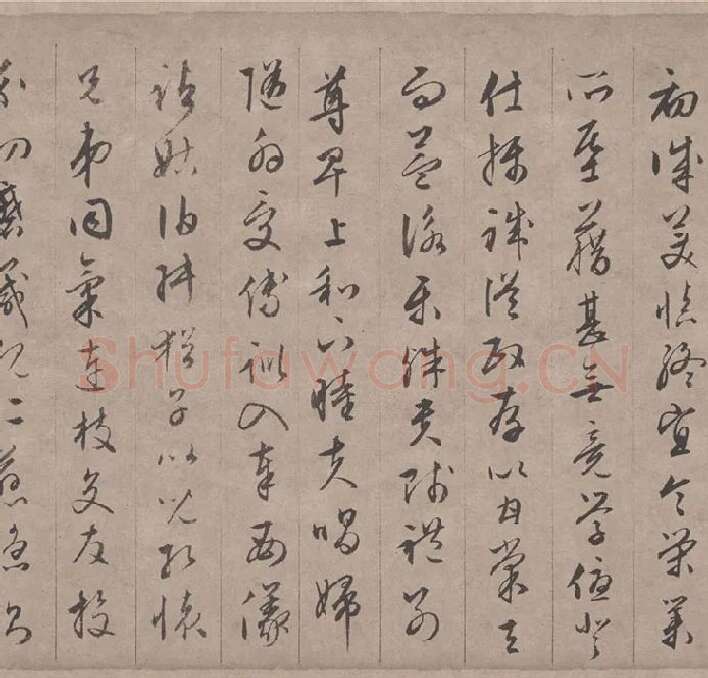 初誠美慎終宜令榮業
所基籍甚無竟學優登
仕攝職從政存以甘棠去
而益詠樂殊貴賤禮別
尊卑上和下睦夫唱婦
隨外受傅訓入奉母儀
諸姑伯叔猶子比兒孔懷
兄弟同氣連枝交友投
分切磨箴規仁慈隱惻
Shufawang.CN